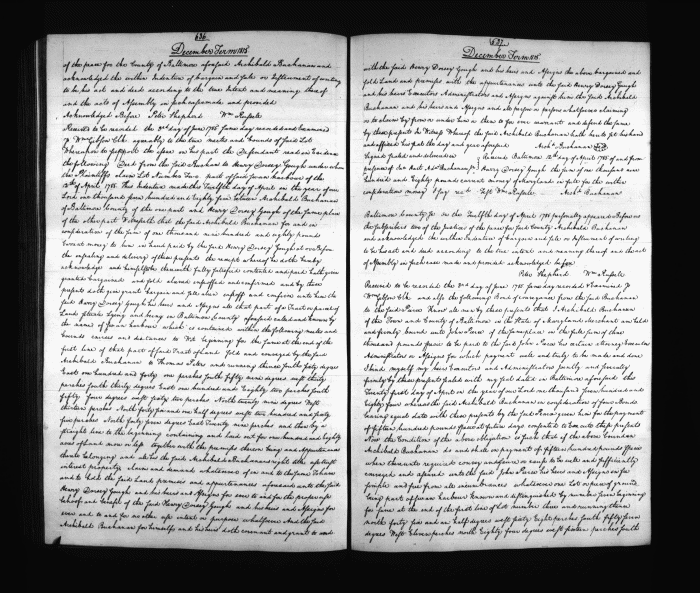 636.
December Term 1815
of the peace for the County of Baltimore aforesaid Archibald Buchanan and
acknowledged the within Indenture of bargain and sale or Instrument of writing
to be his act and deed according to the true intent and meaning thereof
and the acts of Assembly in such case made and provided
Acknowledged Before Peter Shepherd Wm Russell
Received to be recorded the 3rd day of June 1785 same day recorded and Examined
Wm Gibson Clk agreeably to the true metes and bounds of said Lot
Whereupon to support the issue on his part the Defendant read in Evidence
the following Deed from the said Buchanan to Henry Dorsey Gough under whom
the Plaintiffs claim Lot Number Two part of Cold Harbour the
12th of April 1785 This Indenture made the Twelfth day of April in the year of our
Lord one thousand seven hundred and Eighty five between Archibald Buchanan
of Baltimore County of the one part and Henry Dorsey Gough of the same place
of the other part Witnesseth that the said Archibald Buchanan for and in
consideration of the sum of one thousand nine hundred and eighty pounds
Current money to him in hand paid by the said Henry Dorsey Gough at or Before
the ensealing and delivery of these presents the receipt whereof he doth hereby
acknowledge and himself therewith fully satisfied contented and paid hath given
granted bargained and sold aliened enfeoffed and confirmed and by these
presents doth give grant bargain and sell alien enfeoff and confirm unto him the
said Henry Dorsey Gough his heirs and Assigns all that part of a Tract or parcel of
Land situate Lying and being in Baltimore County aforesaid called and known by
the name of harbour which is contained within the following metes and
bounds courses and distances to Wit beginning for the same at the end of the
first line of that part of said Tract of Land sold and conveyed by the said
Archibald Buchanan to Thomas Peters and running thence South forty degrees
East one hundred and forty one perches South fifty nine degrees west thirty
perches South thirty degrees East one hundred and Eighty two perches South
fifty four degrees west forty two perches North twenty nine degrees West
thirteen perches North forty four and one half degrees west two hundred and forty
five perches North forty four degrees East Twenty nine perches and then by a
straight line to the beginning containing and laid out for one hundred and eighty
acres of land more or less together with the premises thereon being and Appurtenances
thereto belonging and also the said Archibald Buchanans right title estate
interest property claim and demand whatsoever of in and to the same To have
and to hold the said Land premises and appurtenances aforesaid unto the said
Henry Dorsey Gough and his heirs and Assigns for ever to and for the proper use
behoof and benefit of the said Henry Dorsey Gough and his heirs and Assigns for
ever and to and for no other use intent or purpose whatsoever And the said
Archibald Buchanan for himself and his heirs doth covenant and grant to and
637.
December Term 1815
with the said Henry Dorsey Gough and his heirs and Assigns the above bargained and
sold Land and premises with the appurtenances unto the said Henry Dorsey Gough
and his heirs Executors Administrators and Assigns against him the said Archibald
Buchanan and his heirs and Assigns and all persons whatsoever claiming
or to claim by from or under him or them to for ever warrant and defend the same
by these presents In Witness Whereof the said Archibald Buchanan hath hereto set his hand
and affixed his seal the day and year aforesaid Archd Buchanan
Signed Sealed and delivered Received Baltimore 12th day of April 1785 of and from
presence of Henry Dorsey Gough the sum of one thousand nine
hundred and Eighty pounds current money of Maryland in full for the within
consideration money I say recd Test Wm Russell Archd Buchanan
Baltimore County Ss on the Twelfth day of April 1785 personally appeared Before us
the Subscribers two of the Justices of the peace for said County Archibald Buchanan
and acknowledged the within Indenture of bargain and sale or Instrument of writing
to be his act and deed according to the true intent and meaning thereof and the act
of Assembly in such case made and provided Acknowledged before
Peter Shepherd Wm Russell
Received to be recorded the 3rd day of June 1785 same day recorded & Examined
Wm Gibson Clk and also the following Bond of conveyance from the said Buchanan
to the said Pierce Know all men by these presents that I Archibald Buchanan
of the Town and County of Baltimore in the State of Maryland Merchant am held
and firmly bound unto John Pierce of the same place in the full sum of five
thousand pounds specie to be paid to the said John Pierce his certain attorney Executors
Administrators or Assigns for which payment well and truly to be made and done
I bind myself my heirs Executors and Administrators jointly and severally
firmly by these presents sealed with my seal dated in Baltimore aforesaid this
Twenty first day of April in the year of our Lord one thousand seven hundred and
Eighty four whereas the said Archibald Buchanan in consideration of four Bonds
bearing equal date with these presents by the said Pierce given him for the payment
of fifteen hundred pounds Specie at future days consented to Execute these presents
Now the Condition of the above Obligation is such that if the above bounden
Archibald Buchanan do and shall on payment of fifteen hundred pounds specie
when thereunto required convey and confirm or cause to be well and sufficiently
conveyed and assured unto the said John Pierce his heirs and Assigns in fee
simple and free from all incumbrances whatsoever one Lot or piece of ground
being part of harbour known and distinguished by number five beginning
for same at the end of the first line of Lot number three and running thence
north forty four and an half degrees west forty Eight perches South fifty seven
degrees West Eleven perches north Eighty four degrees west fifteen perches South